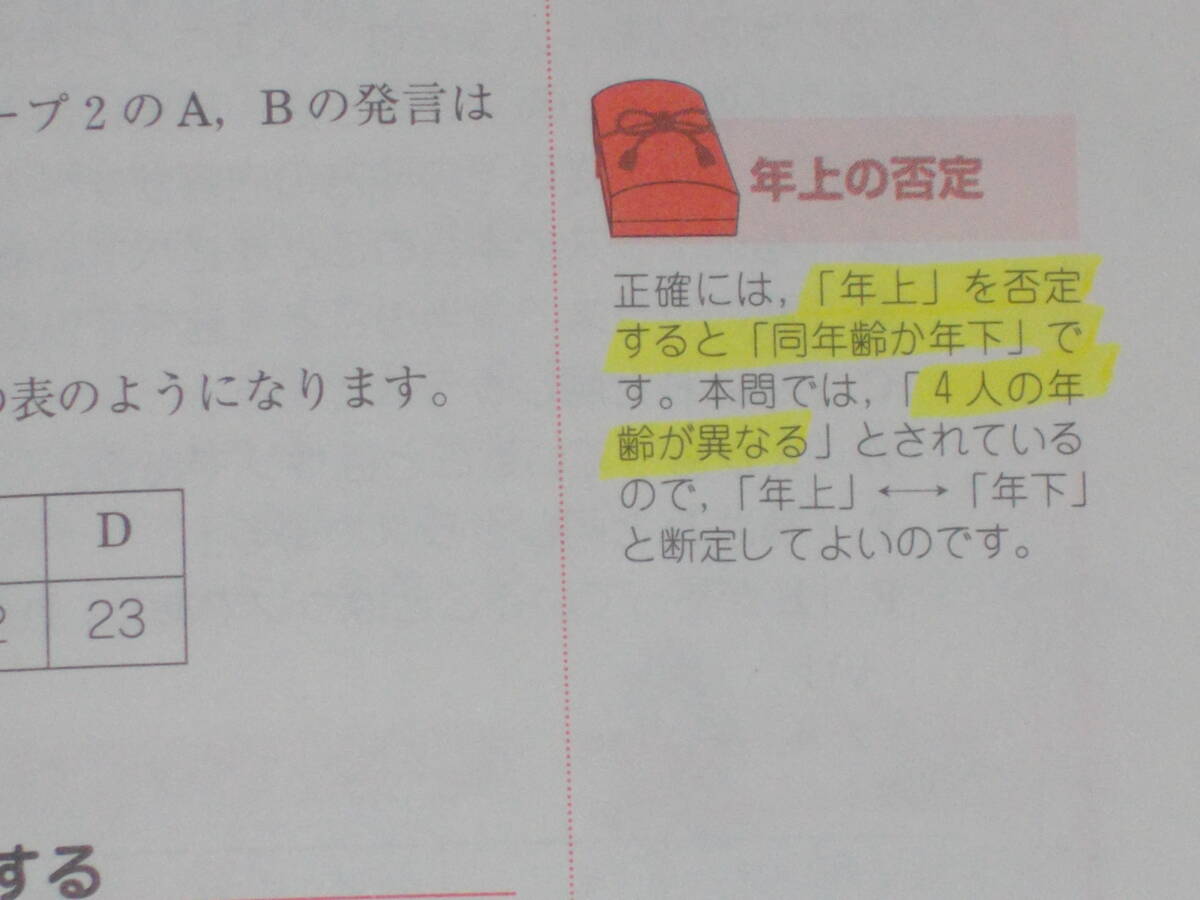 ープ2のA，Bの発言は
表のようになります。
D
23
する
年上の否定
正確には，「年上」を否定
すると「同年齢か年下」で
す。本問では，「4人の年
齢が異なる」とされている
ので，「年上」←→「年下」
と断定してよいのです。